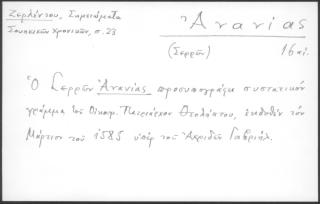 Ζερλέντου, Σημειώματα
Σουηκικῶν χρονικῶν, σ. 23
Ἀνανίας
(Σερρῶν)
16 αἰ.
Ὁ Σερρῶν Ἀνανίας προσυπογράφει συστατικὸν
γράμμα τοῦ Οἰκουμ. Πατριάρχου Θεολήπτου, ἐκδοθὲν τὸν
Μάρτιον τοῦ 1585 ὑπὲρ τοῦ Ἀχριδῶν Γαβριήλ.